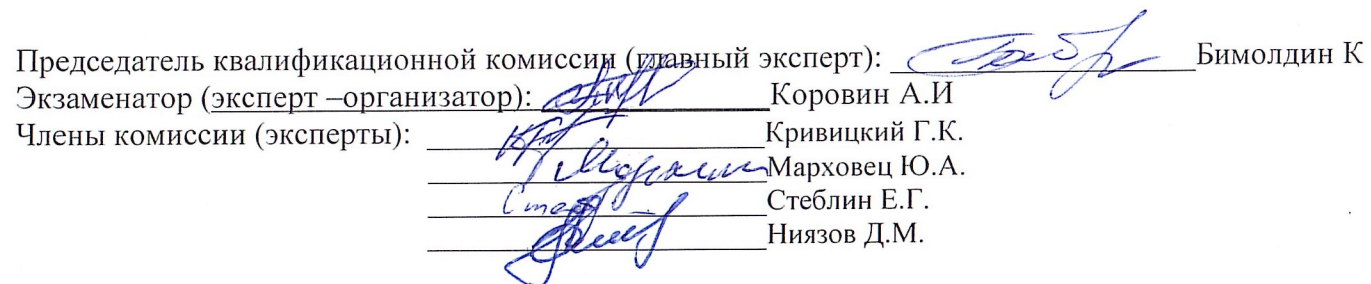 Председатель квалификационной комиссии (главный эксперт): Бимолдин К
Экзаменатор (эксперт –организатор): Коровин А.И
Члены комиссии (эксперты): Кривицкий Г.К.
Марховец Ю.А.
Стеблин Е.Г.
Ниязов Д.М.